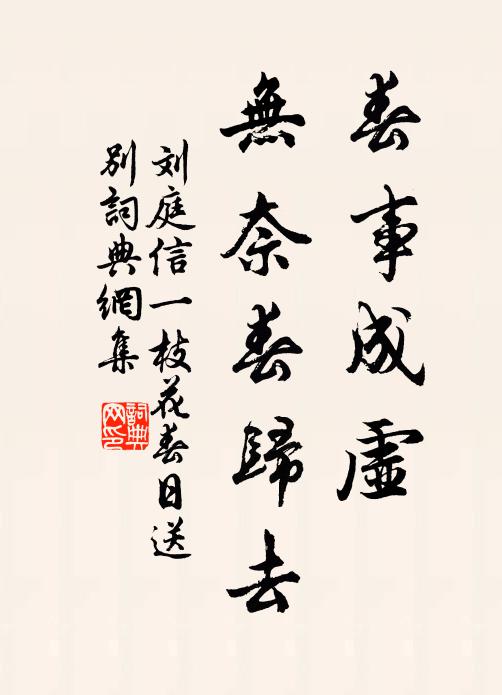 春事成虛
無奈春歸去
刘庭信一枝花春日送
別詞典網集
詞典
网印